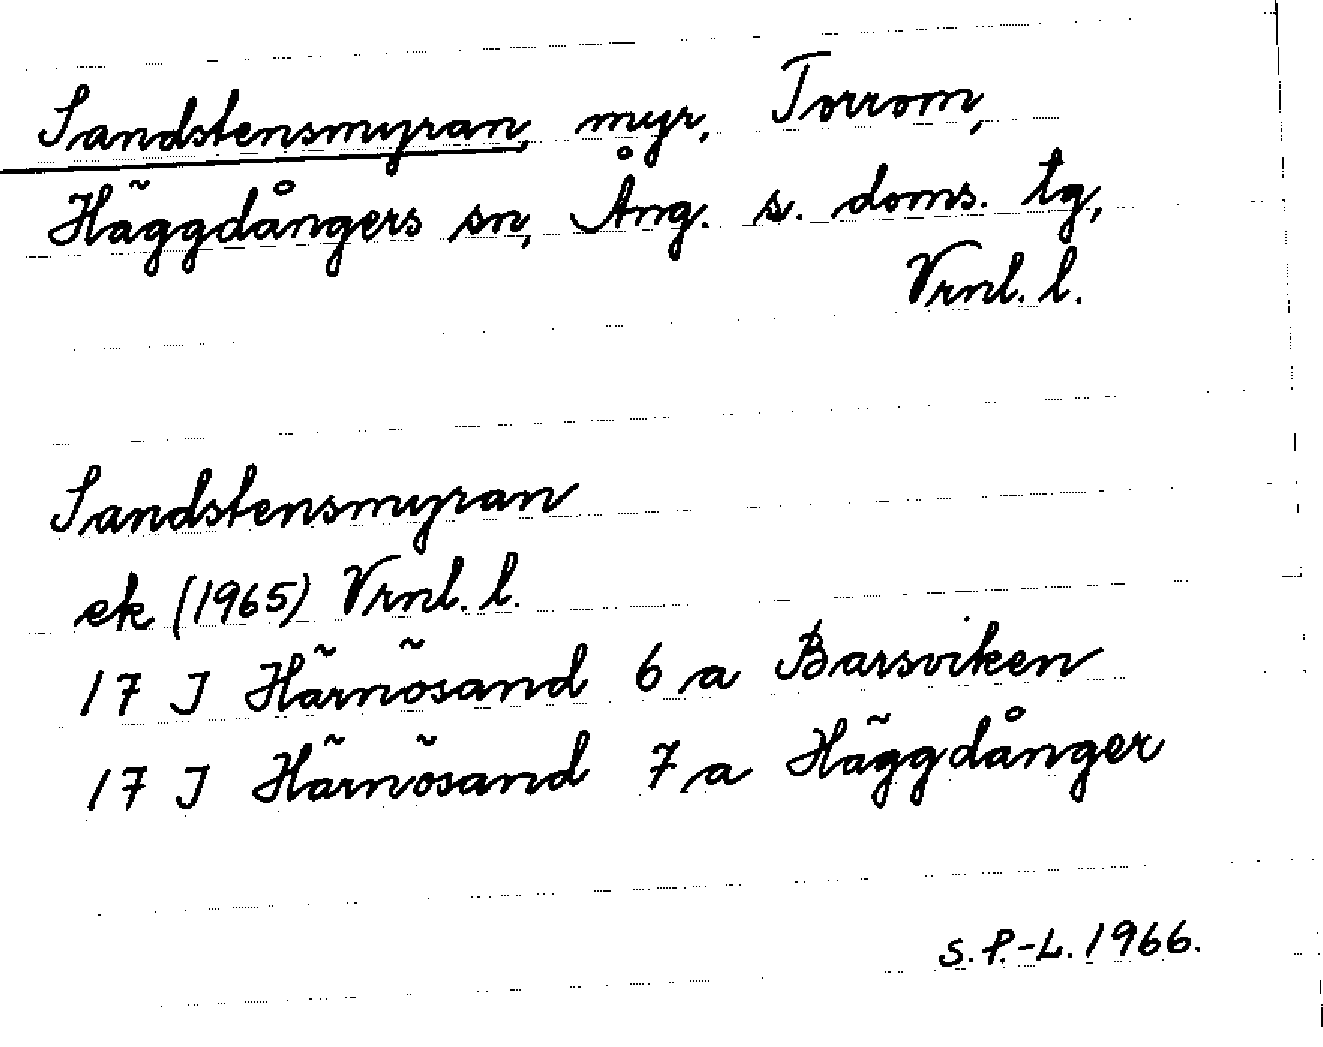 Sandstensmyran, myr, Torrom,
Häggdångers sn, Ång. s. doms. tg,
Vrnl. l.
Sandstensmyran
ek (1965) Vrnl. l.
17 J Härnösand 6 a Barsviken
17 J Härnösand 7 a Häggdånger
S.P.-L. 1966.